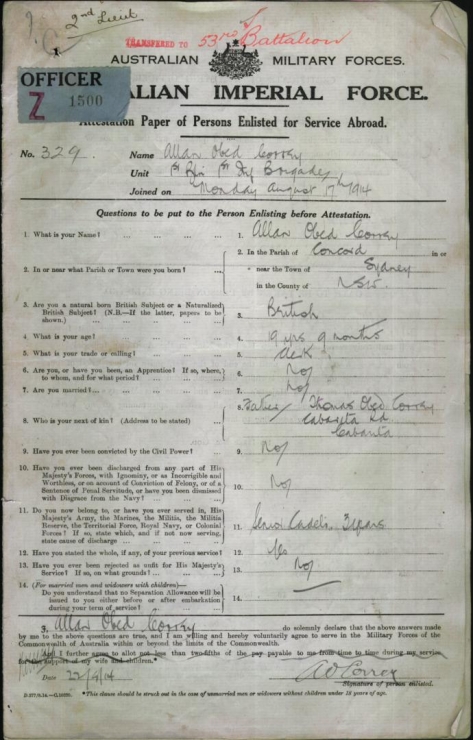 2nd Lieut
1
TRANSFERED TO 53rd Battalion
AUSTRALIAN MILITARY FORCES.
OFFICER
Z 1500
ALIAN IMPERIAL FORCE.
Attestation Paper of Persons Enlisted for Service Abroad.
No. 329 Name Allan Obed Correy
Unit Brigade
Joined on Monday August 17th 1914
Questions to be put to the Person Enlisting before Attestation.
1. What is your Name? 1. Allan Obed Correy
2. In or near what Parish or Town were you born? 2. In the Parish of Concord in or
near the Town of Sydney
in the County of NSW.
3. Are you a natural born British Subject or a Naturalized
British Subject? (N.B.—If the latter, papers to be
shown.) 3. British
4. What is your age? 4. 9 yrs 9 months
5. What is your trade or calling? 5. Clerk
6. Are you, or have you been, an Apprentice? If so, where,
to whom, and for what period? 6. No
7. Are you married? 7. No
8. Who is your next of kin? (Address to be stated) 8. Father Thomas Obed Correy
Cabarita Rd
Cabarita
9. Have you ever been convicted by the Civil Power? 9. No
10. Have you ever been discharged from any part of His
Majesty's Forces, with Ignominy, or as Incorrigible and
Worthless, or on account of Conviction of Felony, or of a
Sentence of Penal Servitude, or have you been dismissed
with Disgrace from the Navy? 10. No
11. Do you now belong to, or have you ever served in, His
Majesty's Army, the Marines, the Militia, the Militia
Reserve, the Territorial Force, Royal Navy, or Colonial
Forces? If so, state which, and if not now serving,
state cause of discharge 11. Senior Cadets 3 years
12. Have you stated the whole, if any, of your previous service? 12. Yes
13. Have you ever been rejected as unfit for His Majesty's
Service? If so, on what grounds? 13. No
14. (For married men and widowers with children)—
Do you understand that no Separation Allowance will be
issued to you either before or after embarkation
during your term of service? 14.
I, Allan Obed Correy do solemnly declare that the above answers made
by me to the above questions are true, and I am willing and hereby voluntarily agree to serve in the Military Forces of the
Commonwealth of Australia within or beyond the limits of the Commonwealth.
And I further agree to allot not less than two-fifths of the pay payable to me from time to time during my service
for the support of my wife and children.*
Date A O Correy
Signature of person enlisted.
*This clause should be struck out in the case of unmarried men or widowers without children under 18 years of age.